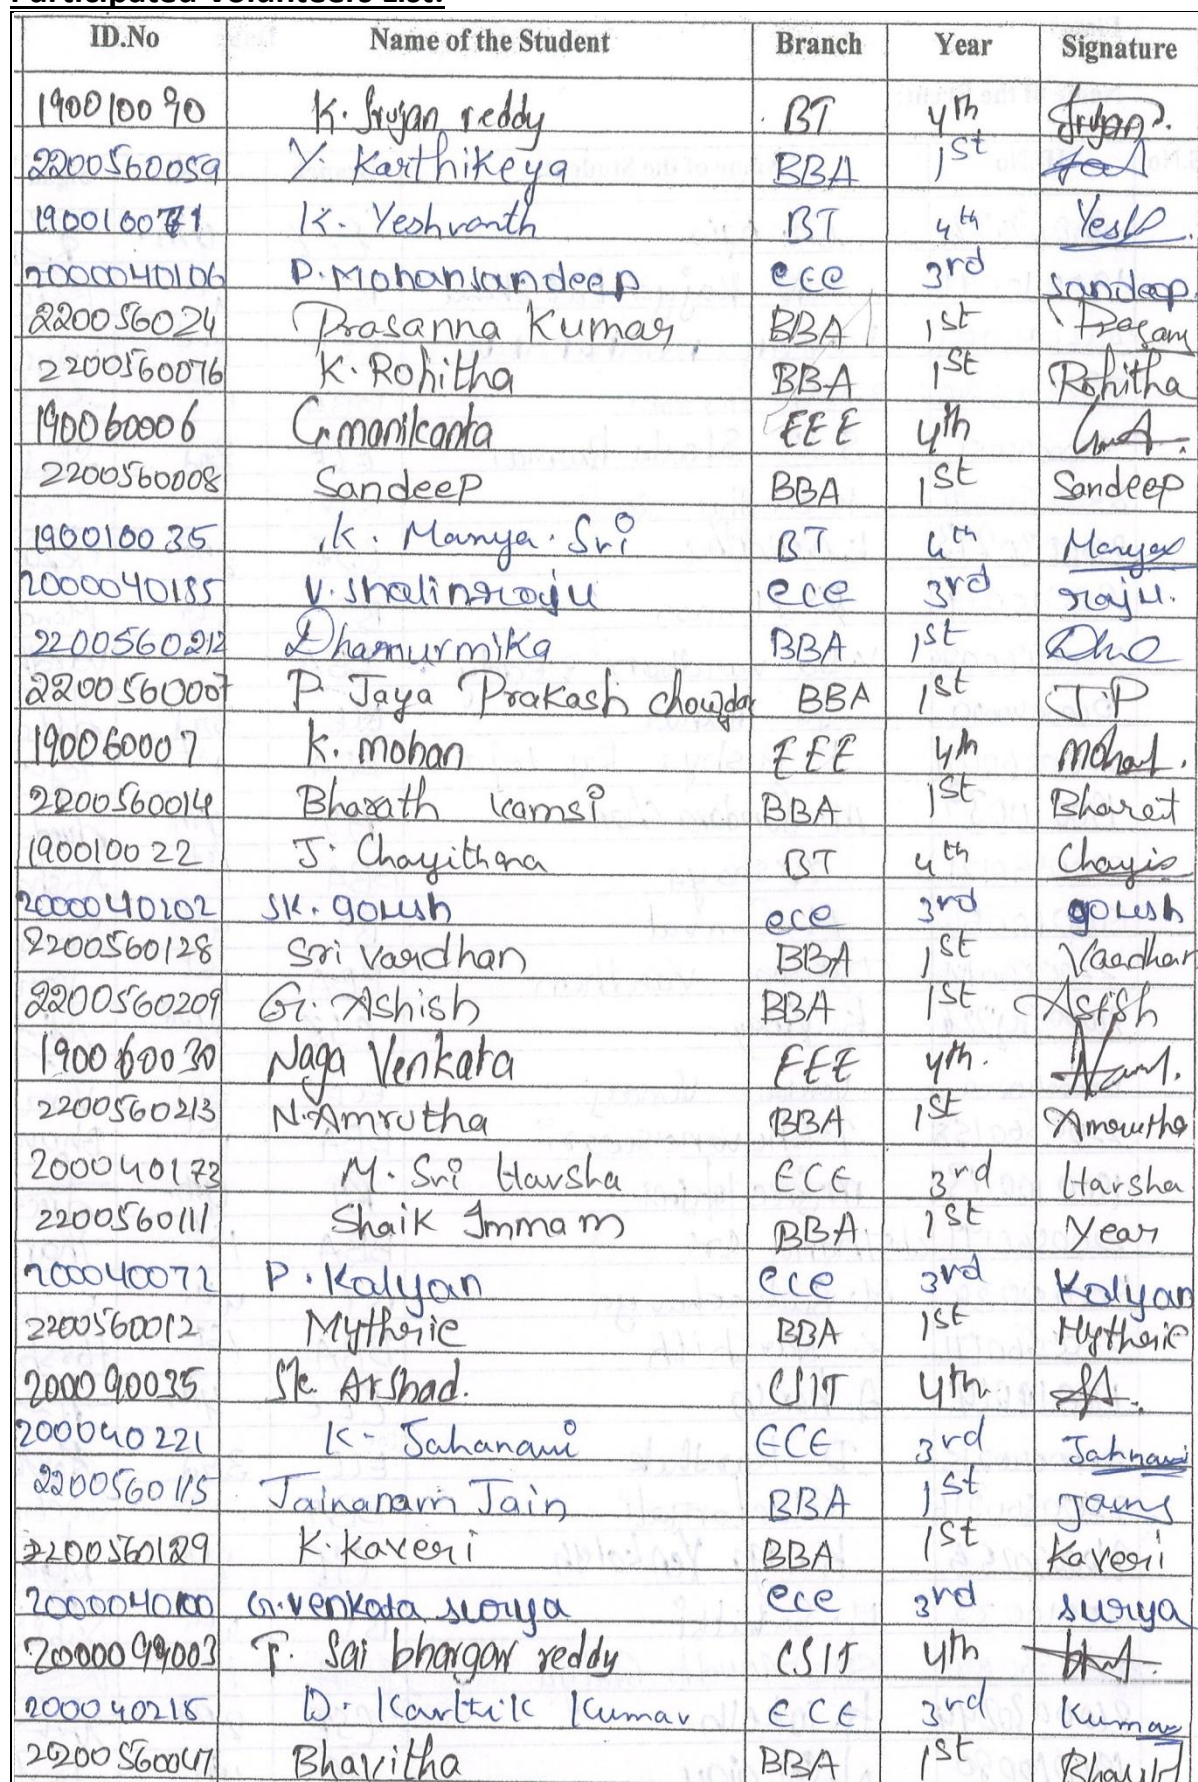 Participated Volunteers List:
ID.No Name of the Student Branch Year Signature
190010090 K. Srujan reddy BT 4th Srujan
2200560059 Y. Karthikeya BBA 1st
190010071 K. Yeshvanth BT 4th Yesh
2000040106 P. Mohansandeep ece 3rd sandeep
220056024 Prasanna Kumar BBA 1st Prasann
2200560076 K. Rohitha BBA 1st Rohitha
190060006 G. manikanta EEE 4th
2200560008 Sandeep BBA 1st Sandeep
190010035 K. Manya Sri BT 4th Manya
2000040185 V. Shalinraju ece 3rd raju.
2200560212 Dharmurmika BBA 1st
2200560007 P. Jaya Prakash chowdar BBA 1st J.P
190060007 K. mohan EEE 4th mohan.
2200560014 Bharath Vamsi BBA 1st Bharat
190010022 J. Chayithra BT 4th
2000040202 SK. goush ece 3rd goush
2200560128 Sri Vardhan BBA 1st Vardhan
2200560209 G. Ashish BBA 1st Ashish
190060030 Naga Venkata EEE 4th.
2200560213 N. Amrutha BBA 1st Amrutha
200040173 M. Sri Harsha ECE 3rd Harsha
2200560111 Shaik Immam BBA 1st Year
200040072 P. Kalyan ece 3rd Kalyan
2200560012 Mytherie BBA 1st Mytherie
200090035 Sk. Arshad. CSIT 4th
200040221 K- Jahanavi ECE 3rd Jahnavi
2200560115 Jainanam Jain BBA 1st
2200560129 K. Kaveri BBA 1st Kaveri
2000040100 G. venkata surya ece 3rd surya
2000099003 T. Sai bhargav reddy CSIT 4th
200040215 D. Karthik Kumar ECE 3rd Kumar
2200560047 Bhavitha BBA 1st